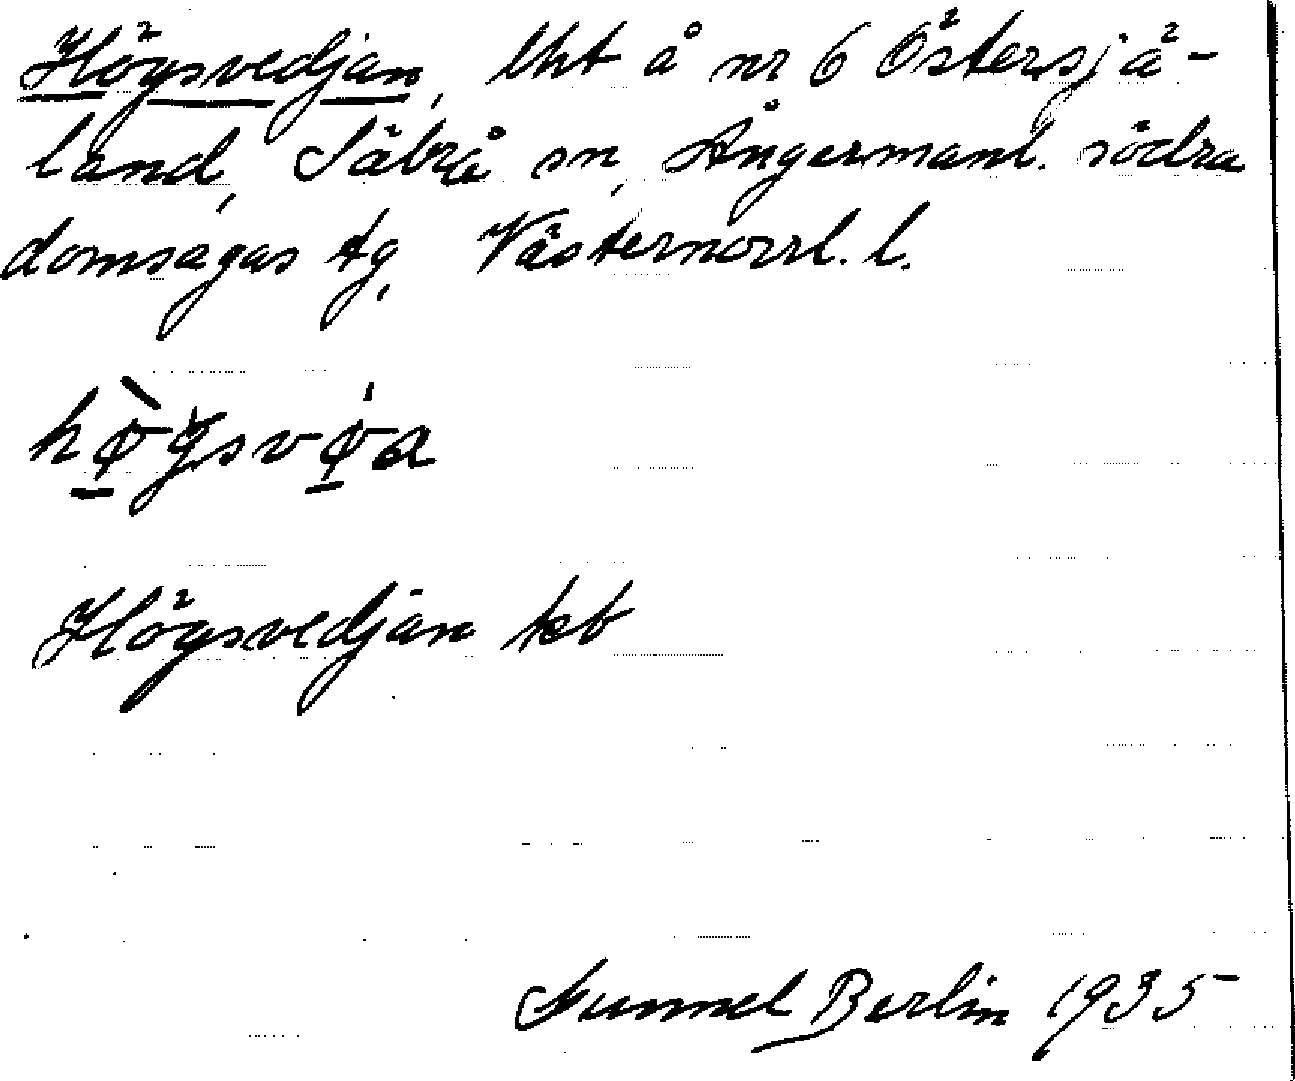 Högsvedjan, lht å nr 6 Östersjä-
land, Säbrå sn, Ångermanl. södra
domsagas tg, Västernorrl. l.
hø̀gsvø̍a
Högsvedjan kb
Gunnel Berlin 1935